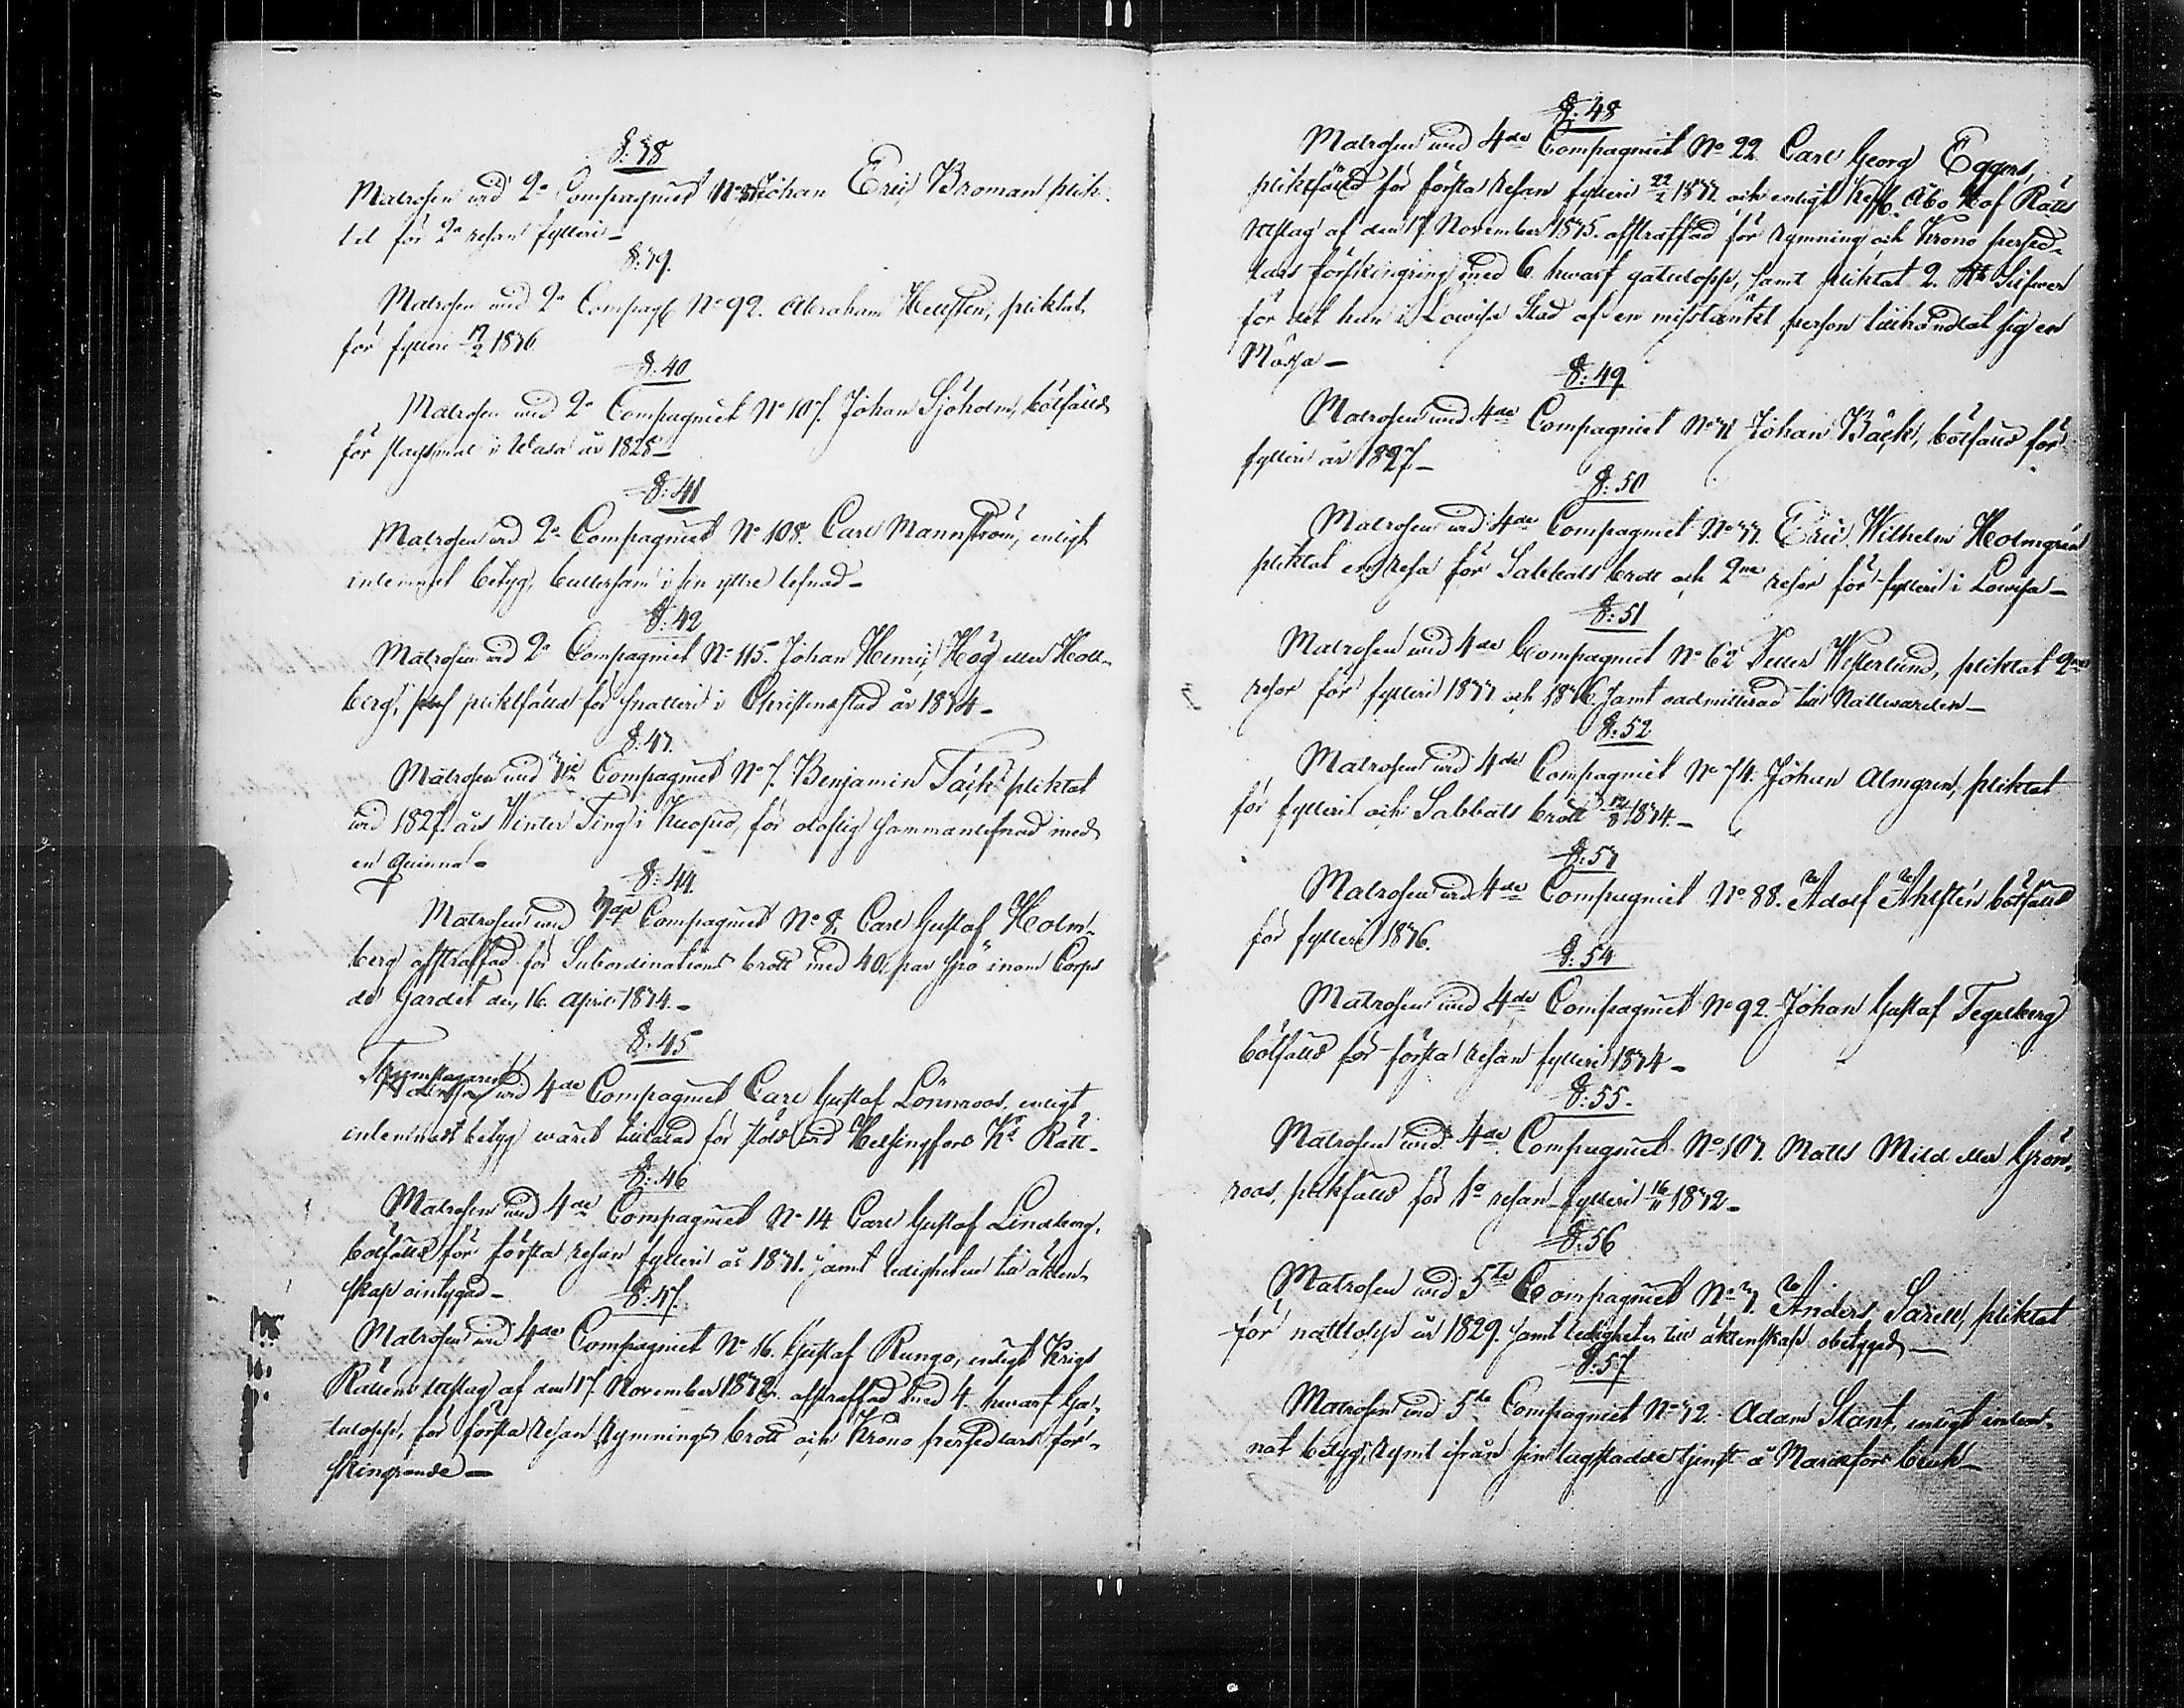 §: 38
Matrosen vid 2a Compagniet No Johan Eric Broman plik-
tat för 2a resan fylleri –
§: 39.
Matrosen vid 2a Compag: No 92. Abraham Hellsten, pliktat
för fylleri 1836
§: 40
Matrosen vid 2a Compagniet No 107. Johan Sjöholm, bötfälld
för slagsmål i Wasa år 1828 –
§: 41
Matrosen vid 2a Compagniet No 108. Carl Mannström, enligt
inlemnat betyg, bullersam i sin yttre lefnad –
§: 42
Matrosen vid 2a Compagniet No 115. Johan Henric Hög eller Holl-
berg, pliktfälld för snatteri i Christinestad år 1834 –
§: 43.
Matrosen vid 3ie Compagniet No 7. Benjamin Täck pliktat
vid 1827 års Winter Ting i Kuopio, för olaflig sammanlefnad med
en Quinna –
§: 44.
Matrosen vid 3ie Compagniet No 8. Carl Gustaf Holm-
berg afstraffad för Subordinations brott med 40. par spö inom Corps
de Gardet den 16. April 1834. –
§: 45
Trumslagaren
vid 4de Compagniet Carl Gustaf Lönnroos, enligt
inlemnadt betyg warit tilltalad för stöld vid Helsingfors Ks Rätt –
§: 46
Matrosen vid 4de Compagniet No 14. Carl Gustaf Lindberg,
bötfälld för första resan fylleri år 1831. samt ledigheten till äkten-
skap ointygad –
§: 47.
Matrosen vid 4de Compagniet No 16. Gustaf Rungo, enligt Krigs
Rättens utslag af den 17. November 1832. afstraffad med 4. hwarf Ga-
tulopp, för första resan Rymnings brott och Krono persedlars för-
skingrande –
§: 48
Matrosen vid 4de Compagniet No 22 Carl Georg Eggert,
pliktfälld för första resan fylleri 22/2 1833 och enligt Kejs. Åbo Hof Rätts
utslag af den 17 November 1835. afstraffad för rymning och Krono persed-
lars förskingring med 6. hwarf gatulopp, samt pliktat 2. Silfwer
för det han i Lowisa Stad af en misstänkt person tillhandlat sig en
Mössa –
§: 49
Matrosen vid 4de Compagniet No 31 Johan Bäck, bötfälld för
fylleri år 1827. –
§: 50
Matrosen vid 4de Compagniet No 33. Eric Wilhelm Holmgren
pliktat en resa för Sabbats brott och 2ne resor för fylleri i Lowisa –
§: 51
Matrosen vid 4de Compagniet No 62 Petter Westerlund, pliktat 2ne
resor för fylleri 1833 och 1836 samt oadmitterad till Nattwarden –
§: 52
Matrosen vid 4de Compagniet No 74. Johan Almgren, pliktat
för fylleri och Sabbats brott 12/8 1834. –
§: 53
Matrosen vid 4de Compagniet No 88. Adolf Ahlsten bötfälld
för fylleri 1836.
§: 54
Matrosen vid 4de Compagniet No 92. Johan Gustaf Tegelberg
bötfälld för första resan fylleri 1834 –
§: 55 –
Matrosen vid 4de Compagniet No 103. Matts Mild eller Grön-
roos, pliktfälld för 1a resan fylleri 16/11 1832 –
§: 56
Matrosen vid 5te Compagniet No 3. Anders Sarell, pliktat
för nattlopp år 1829. samt ledigheten till äktenskap obetygad –
§: 57
Matrosen vid 5te Compagniet No 32. Adam Stant, enligt inlem-
nat betyg, rymt ifrån sin lagstadde tjenst å Mariefors bruk –